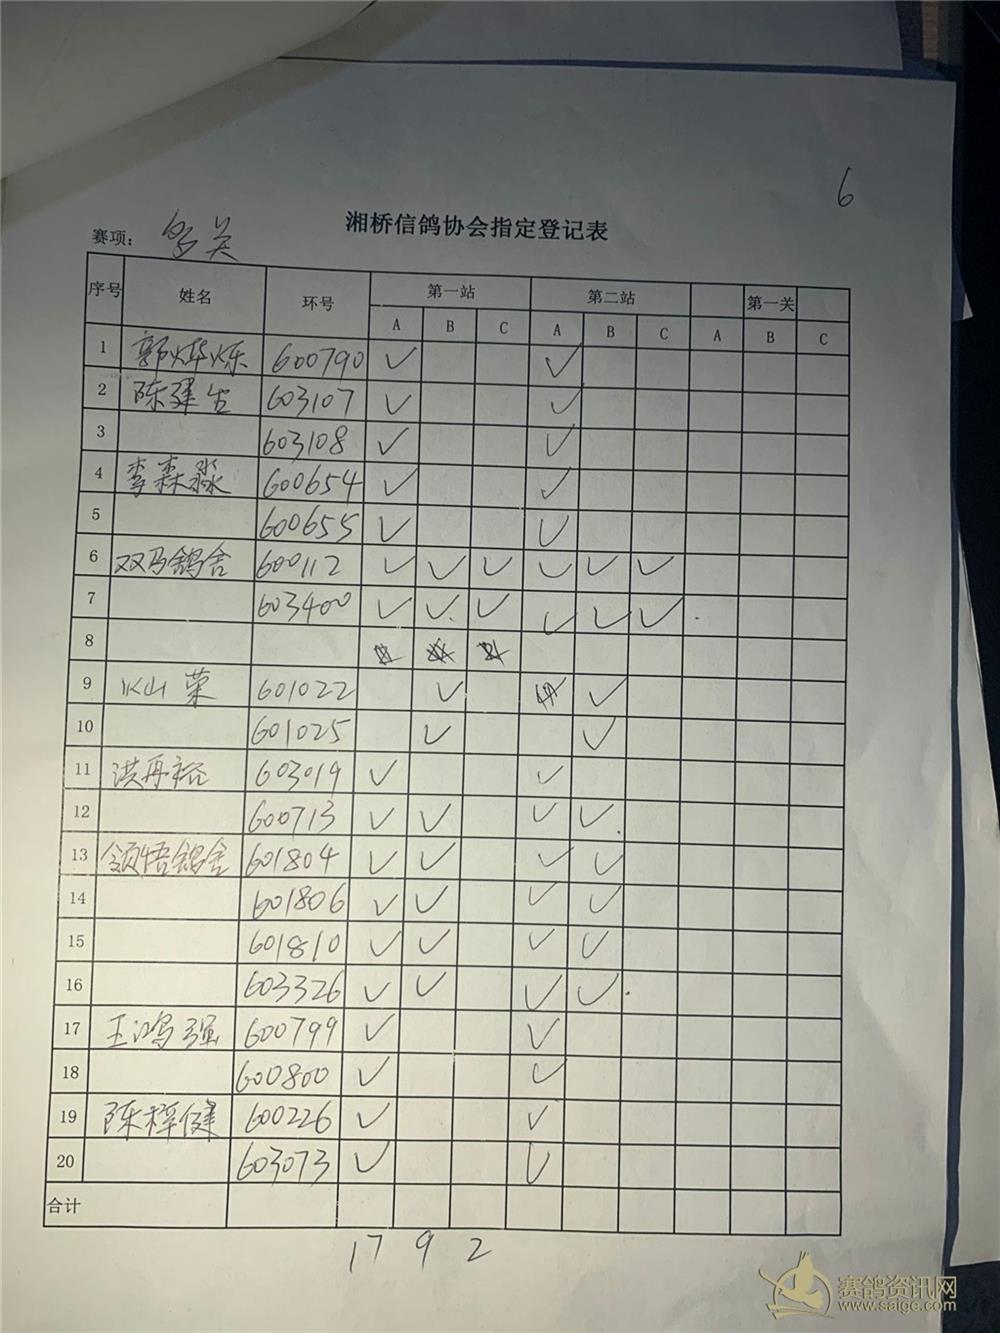 6
湘桥信鸽协会指定登记表
赛项： 多关
序号 姓名 环号 第一站 第二站 第一关
A B C A B C A B C
1 郭烨烁 600790 ✓ ✓
2 陈建生 603107 ✓ ✓
3 603108 ✓ ✓
4 李森淼 600654 ✓ ✓
5 600655 ✓ ✓
6 双马鸽舍 600112 ✓ ✓ ✓ ✓ ✓ ✓
7 603400 ✓ ✓ ✓ ✓ ✓ ✓
8
9 荣 601022 ✓ ✓
10 601025 ✓ ✓
11 洪再裕 603019 ✓ ✓
12 600713 ✓ ✓ ✓ ✓
13 领悟鸽舍 601804 ✓ ✓ ✓ ✓
14 601806 ✓ ✓ ✓ ✓
15 601810 ✓ ✓ ✓ ✓
16 603326 ✓ ✓ ✓ ✓
17 王鸿强 600799 ✓ ✓
18 600800 ✓ ✓
19 陈梓健 600226 ✓ ✓
20 603073 ✓ ✓
合计
17 9 2
赛鸽资讯网
www.saige.com